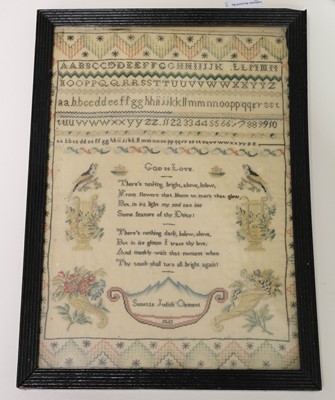 AABBCCDDEEFFGGHHIIJJK LLMM
NOOPPQQRRSSTTUUVVWWXXYYZ
aabbccddeeffgghhiijjkkllmmnnooppqqrrsst
tuuvvwwxxyyzz. 11 22 33 44 55 66 77 88 99 10
aabbccddeeffgghhiijjkkllmmnnooppqqrrssttuuvvwwxxyyzz
GOD IS LOVE.
There's nothing bright, above, below,
From flowers that bloom to stars that glow,
But in its light my soul can see
Some feature of thy Deity!
There's nothing dark, below, above,
But in its gloom I trace thy love,
And meekly wait that moment when
Thy touch shall turn all bright again!
Judith Clement